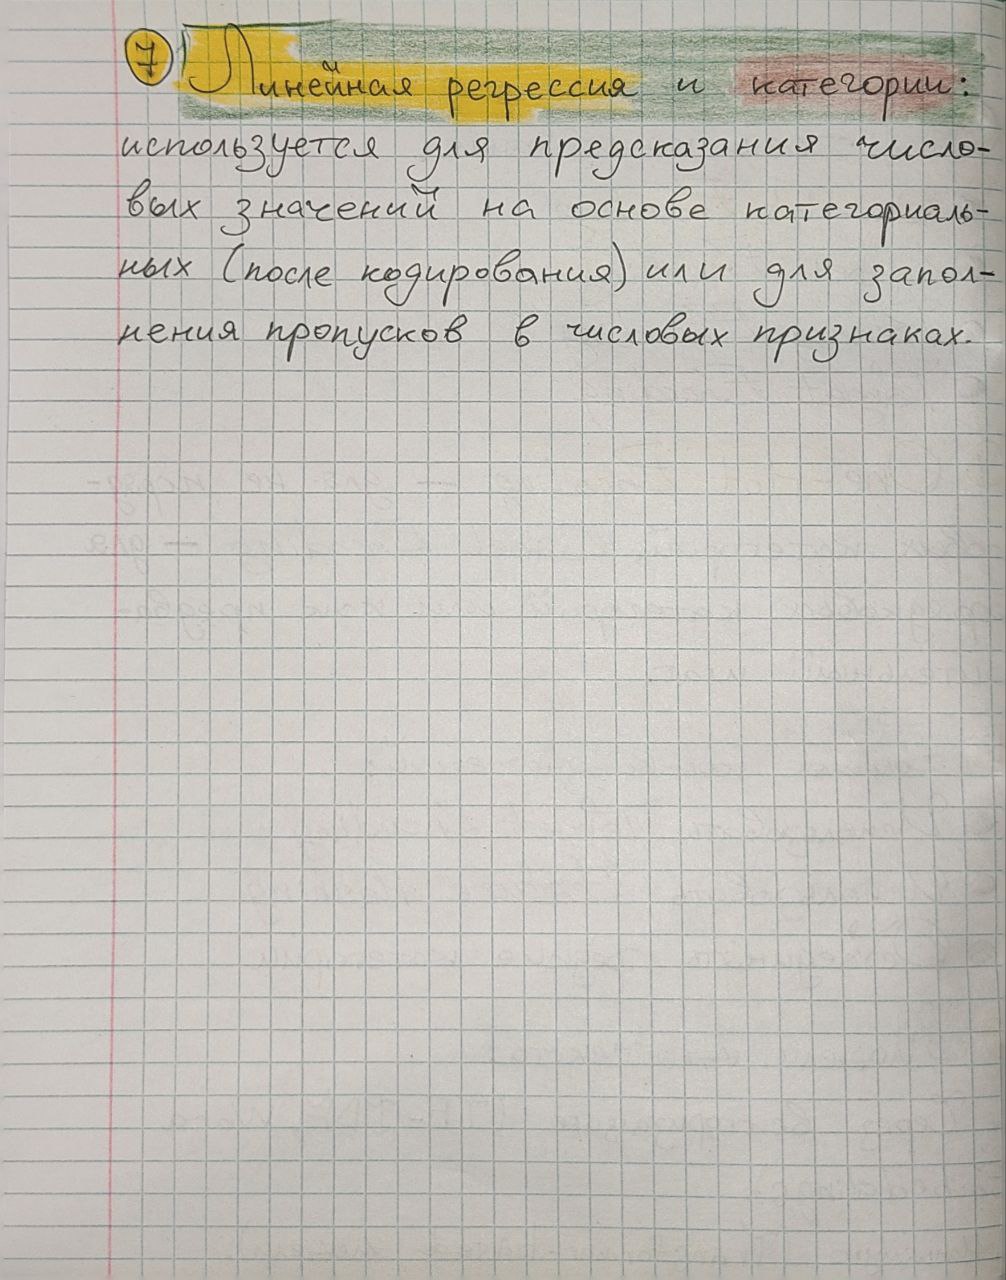 7 Линейная регрессия и категории:
используется для предсказания число-
вых значений на основе категориаль-
ных (после кодирования) или для запол-
нения пропусков в числовых признаках.